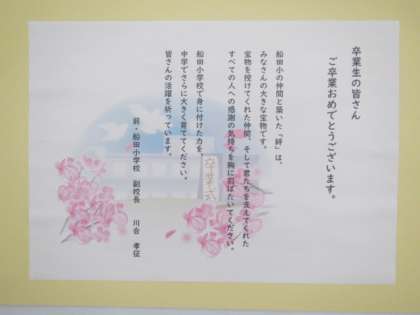 卒業生の皆さん
ご卒業おめでとうございます。
船田小の仲間と築いた「絆」は、
みなさんの大きな宝物です。
宝物を授けてくれた仲間、そして君たちを支えてくれた
すべての人への感謝の気持ちを胸に羽ばたいてください。
船田小学校で身に付けた力を、
中学でさらに大きく育ててください。
皆さんの活躍を祈っています。
前・船田小学校 副校長 川合 孝征
卒業式